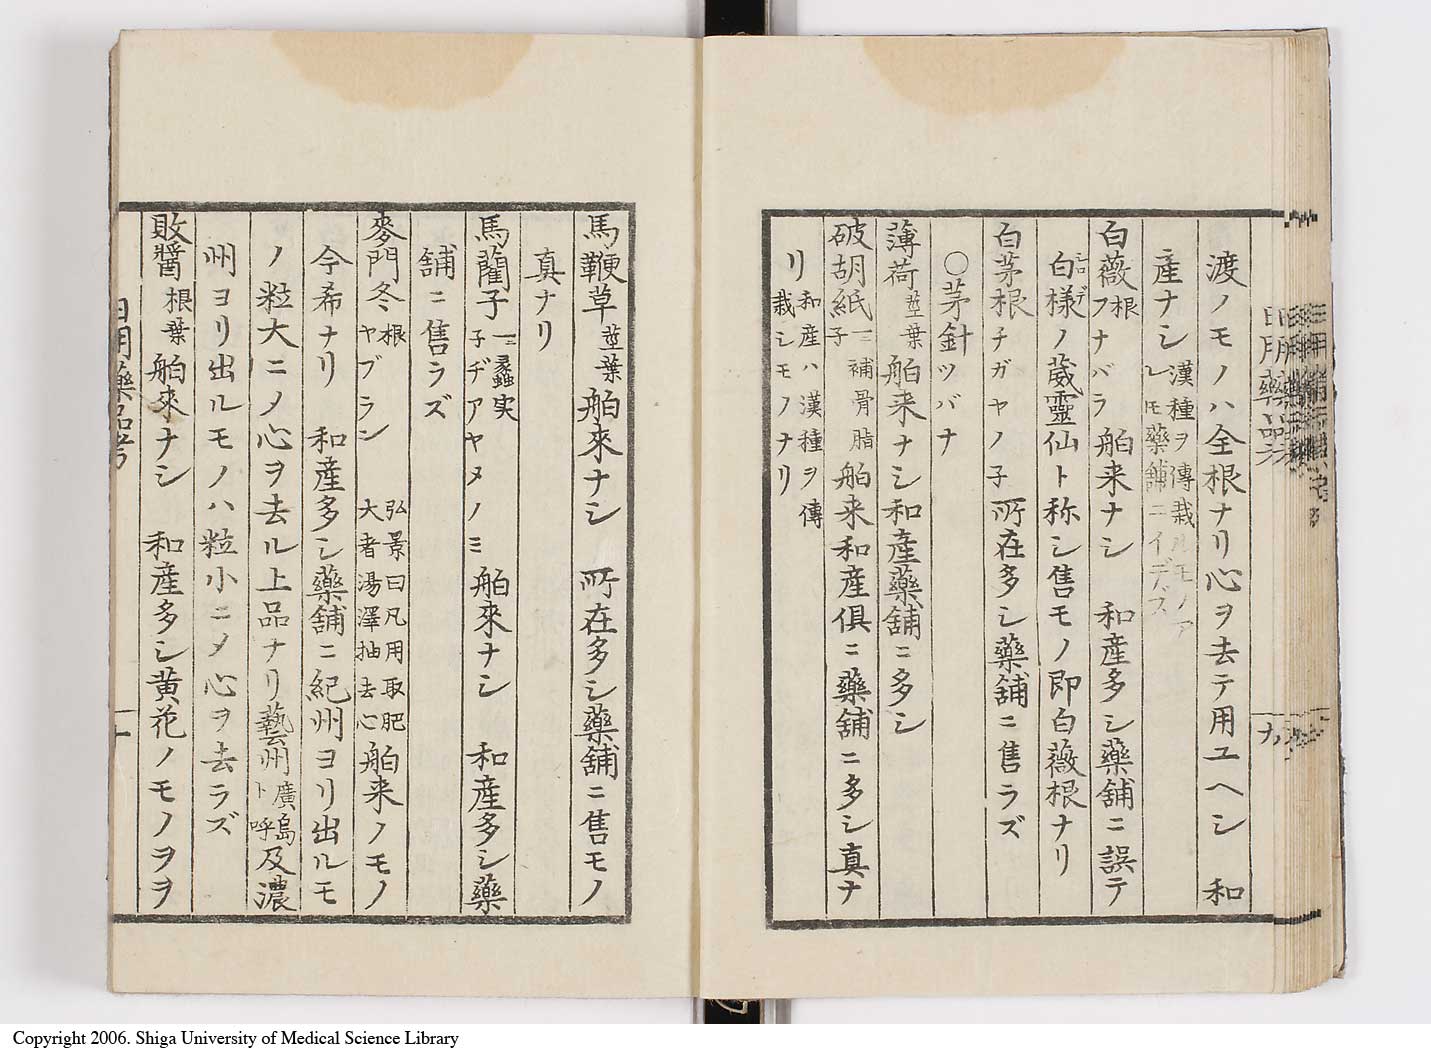 渡ノモノハ全根ナリ心ヲ去テ用ユヘシ　和
産ナシ漢種ヲ傳栽ルモノアレモ藥舗ニイデズ
白薇根フナバラ　舶来ナシ　和産多シ藥舗ニ誤テ
白樣ノ葳靈仙ト称シ售モノ即白薇根ナリ
白茅根チガヤノ子　所在多シ藥舗ニ售ラズ
〇茅針ツバナ
薄荷莖葉　舶来ナシ和産藥舗ニ多シ
破胡紙子一ニ補骨脂　舶来和産俱ニ藥舗ニ多シ真ナ
リ和産ハ漢種ヲ傳栽シモノナリ
日用藥品考
九
馬鞭草莖葉　舶來ナシ　所在多シ藥舗ニ售モノ
真ナリ
馬藺子一ニ蠡実子ヂアヤメノミ　舶來ナシ　和産多シ藥
舗ニ售ラズ
麥門冬根ヤブラン　弘景曰凡用取肥大者湯澤抽去心　舶来ノモノ
今希ナリ　和産多シ藥舗ニ紀州ヨリ出ルモ
ノ粒大ニノ心ヲ去ル上品ナリ藝州廣島ト呼及濃
州ヨリ出ルモノハ粒小ニメ心ヲ去ラズ
敗醬根葉　舶來ナシ　和産多シ黄花ノモノヲヲ
日用藥品考
十
Copyright 2006. Shiga University of Medical Science Library